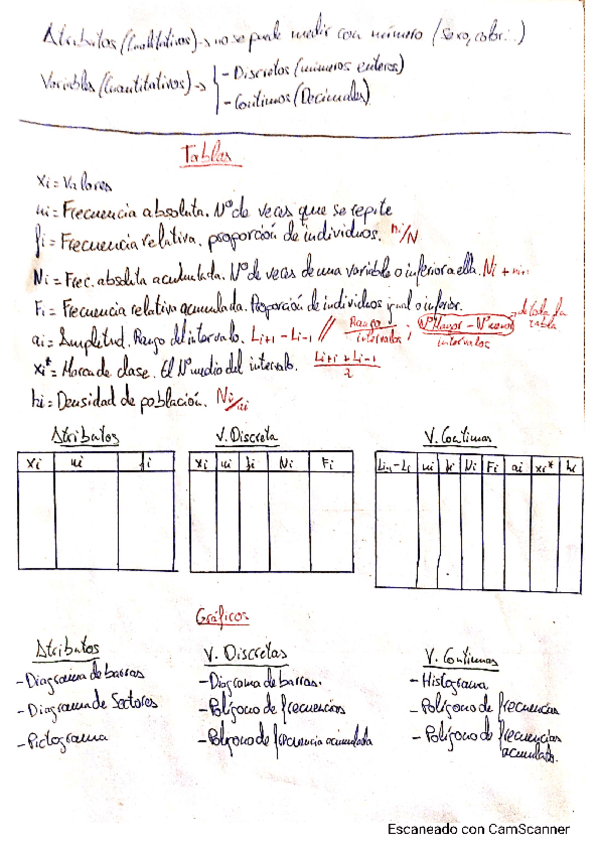 Atributos (Cualitativos) → no se puede medir con número (Sexo, color...)
Variables (Cuantitativos) → { - Discretos (números enteros)
- Continuos (Decimales)
Tablas
xi = Valores
ni = Frecuencia absoluta. Nº de veces que se repite
fi = Frecuencia relativa. proporción de individuos. ni/N
Ni = Frec. absoluta acumulada. Nº de veces de una variable o inferior a ella. Ni + ni...
Fi = Frecuencia relativa acumulada. Proporción de individuos igual o inferior.
ai = Amplitud. Rango del intervalo. Li+1 - Li-1 // Rango/intervalos ; Nº Mayor - Nº menor/intervalos → de toda la tabla
xi* = Marca de clase. El Nº medio del intervalo. Li+1 + Li-1/2
hi = Densidad de población. Ni/ai
Atributos V. Discreta V. Continuas
xi ni fi xi ni fi Ni Fi ni fi Ni Fi ai xi* hi
Gráficos
Atributos V. Discretas V. Continuas
- Diagrama de barras - Diagrama de barras. - Histograma
- Diagrama de Sectores - Polígono de frecuencias - Polígono de frecuencias
- Pictograma - Polígono de frecuencia acumulada - Polígono de frecuencias acumulada.
Escaneado con CamScanner